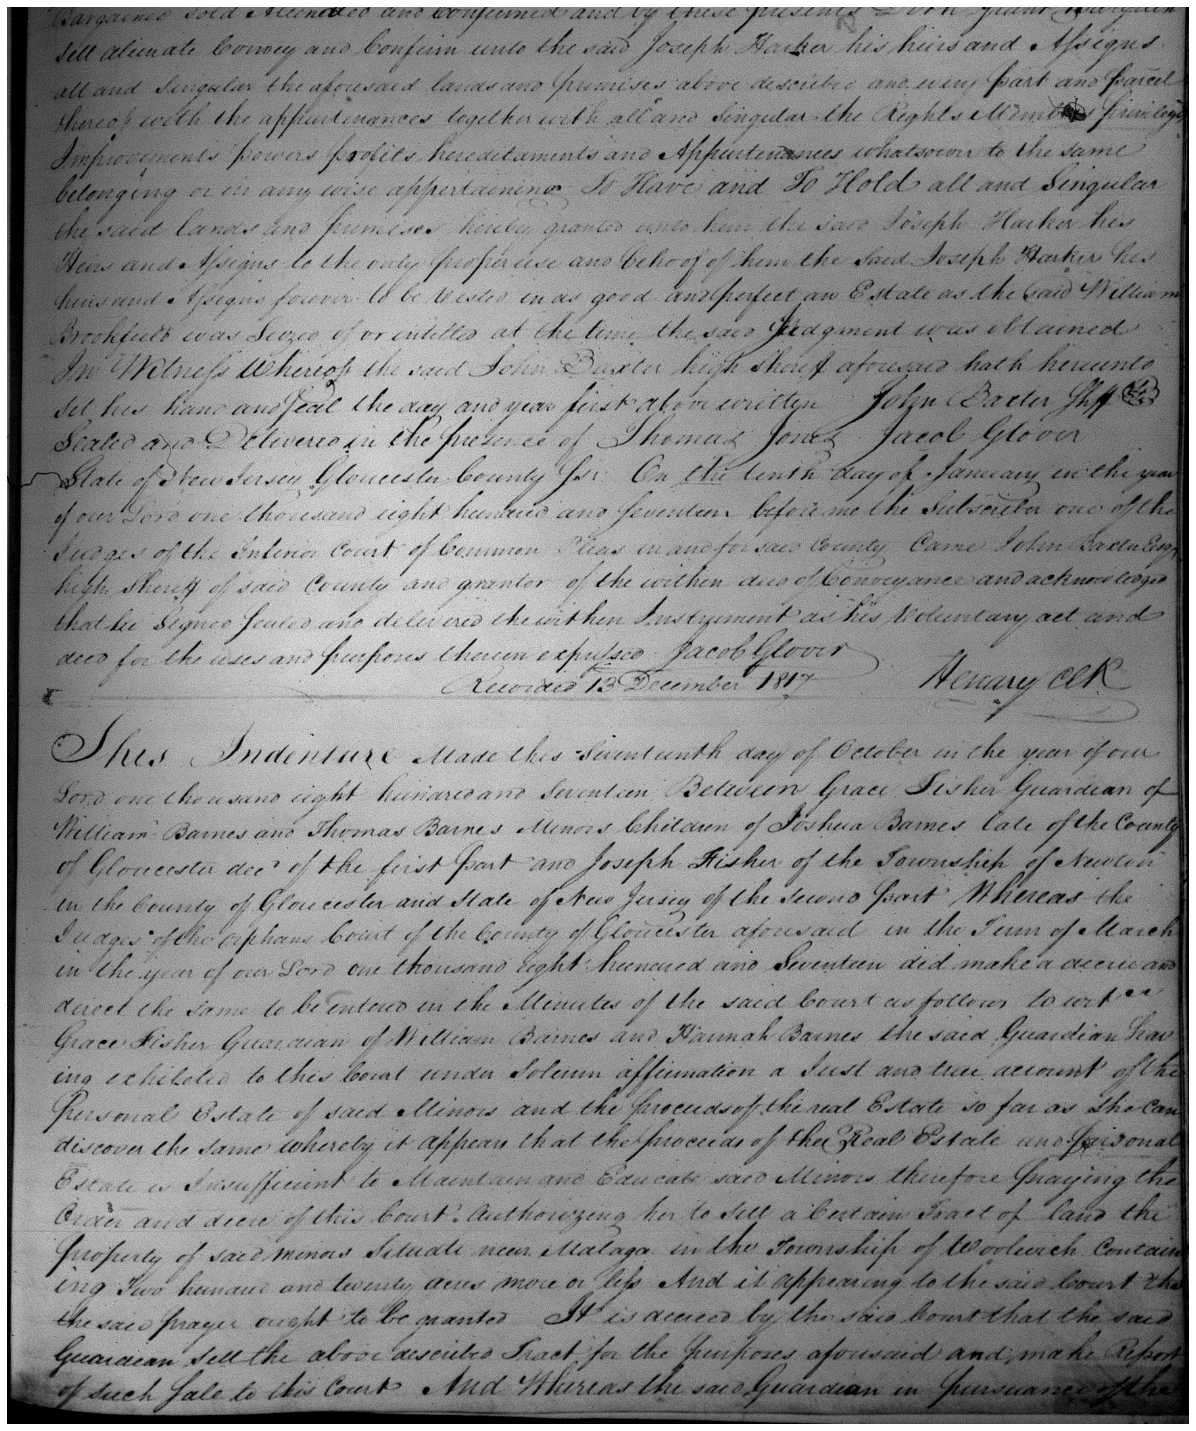 Bargained Sold Aliened and Confirmed and by these presents Doth grant Bargain
Sell alienate Convey and Confirm unto the said Joseph Harker his heirs and Assigns
all and Singular the aforesaid lands and premises above described and every part and parcel
thereof with the appurtenances together with all and Singular the Rights privileges
Improvements powers profits hereditaments and Appurtenances whatsoever to the same
belonging or in any wise appertaining To Have and To Hold all and Singular
the said lands and premises hereby granted unto him the said Joseph Harker his
Heirs and Assigns to the only proper use and behoof of him the Said Joseph Harker his
heirs and Assigns forever to be Vested in as good and perfect an Estate as the said William
Brookfield was Seized of or intitled at the time the said Judgment was obtained
In Witness Whereof the said John Baxter high Sheriff aforesaid hath hereunto
set his hand and Seal the day and year first above written John Baxter Shff
Sealed and Delivered in the presence of Thomas Jones Jacob Glover
State of New Jersey Gloucester County Ss. On the tenth day of January in the year
of our Lord one thousand eight hundred and seventeen before me the Subscriber one of the
Judges of the Inferior Court of Common Pleas in and for said County Came John Baxter Esqr
high Sheriff of said County and grantor of the within deed of Conveyance and acknowledged
that he Signed Sealed and delivered the within Instrument as his Voluntary act and
deed for the uses and purposes therein expressed Jacob Glover
Recorded 13 December 1817 Henury Clk
This Indenture Made this Seventeenth day of October in the year of our
Lord one thousand eight hundred and Seventeen Between Grace Fisher Guardian of
William Barnes and Thomas Barnes Minors Children of Joshua Barnes late of the County
of Gloucester decd of the first part and Joseph Fisher of the Township of Newton
in the County of Gloucester and State of New Jersey of the Second part Whereas the
Judges of the Orphans Court of the County of Gloucester aforesaid in the Term of March
in the year of our Lord one thousand eight hundred and Seventeen did make a decree and
direct the same to be entered in the Minutes of the said Court as follows to wit "
Grace Fisher Guardian of William Barnes and Hannah Barnes the said Guardian hav
ing exhibited to this Court under Solemn affirmation a Just and true account of the
Personal Estate of said Minors and the proceeds of the real Estate so far as She can
discover the same whereby it appears that the proceeds of the Real Estate and personal
Estate is Insufficient to Maintain and Educate said Minors therefore praying the
Order and decree of this Court Authorizing her to Sell a Certain Tract of land the
property of said minors Situate near Malaga in the Township of Woolwich Contain
ing Two hundred and twenty acres more or less And it appearing to the said Court tha
the said prayer ought to be granted It is decreed by the said Court that the said
Guardian Sell the above described Tract for the purposes aforesaid and make Report
of such Sale to this Court And Whereas the said Guardian in pursuance of the